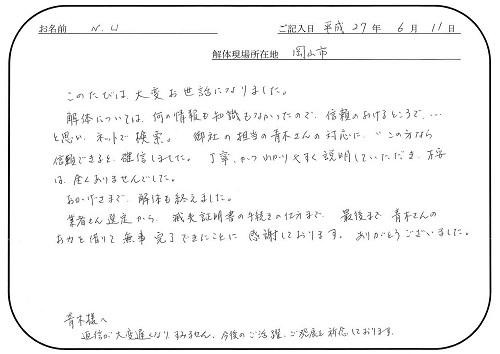 お名前 N.W ご記入日 平成 27年 6月 11日
解体現場所在地 岡山市
このたびは、大変お世話になりました。
解体については、何の情報も知識もなかったので、信頼のおけるところで、…
と思い、ネットで検索。御社の担当の青木さんの対応に、"この方なら
信頼できると、確信しました。丁寧、かつわかりやすく説明していただき、不安
は、全くありませんでした。
おかげさまで、解体も終えました。
業者さん選定から、滅失証明書の手続きの仕方まで、最後まで青木さんの
お力を借りて無事完了できたことに感謝しております。ありがとうございました。
青木様へ
返信が大変遅くなり、すみません。今後のご活躍、ご発展を祈念しております。